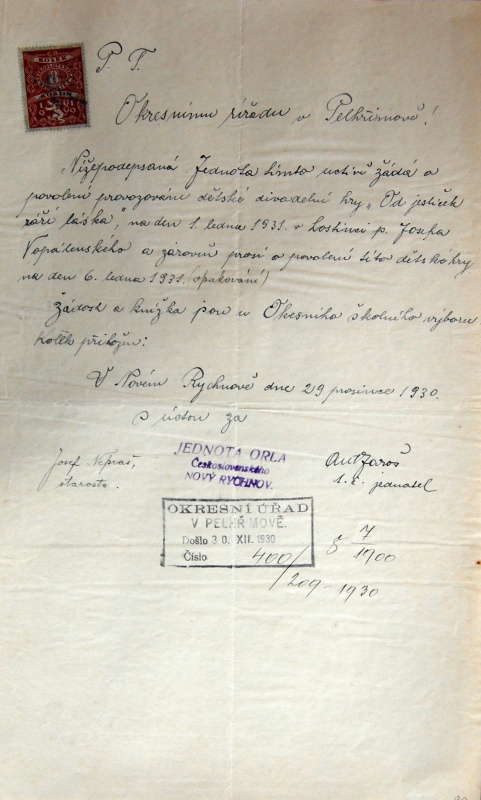 KOLEK
8
P. T.
Okresnímu úřadu v Pelhřimově!
Nížepodepsaná Jednota tímto uctivě žádá o
povolení provozování dětské divadelné hry „Od jesliček
září láska", na den 1. ledna 1931. v hostinci p. Josefa
Vopálenského a zárovň prosí o povolení této dětské hry
na den 6. ledna 1931. (opakování)
Žádost a knížka jsou u Okesního školního výboru
Kolěk přiložen:
V Novém Rychnově dne 29 prosince 1930.
s úctou za
Josef
starosta.
JEDNOTA ORLA
Československého
NOVÝ RYCHNOV.
Ant Jaroš
t. č. jednatel
OKRESNÍ ÚŘAD
V PELHŘIMOVĚ.
Došlo 30. XII. 1930
Číslo 400/
209-1930
7
1900